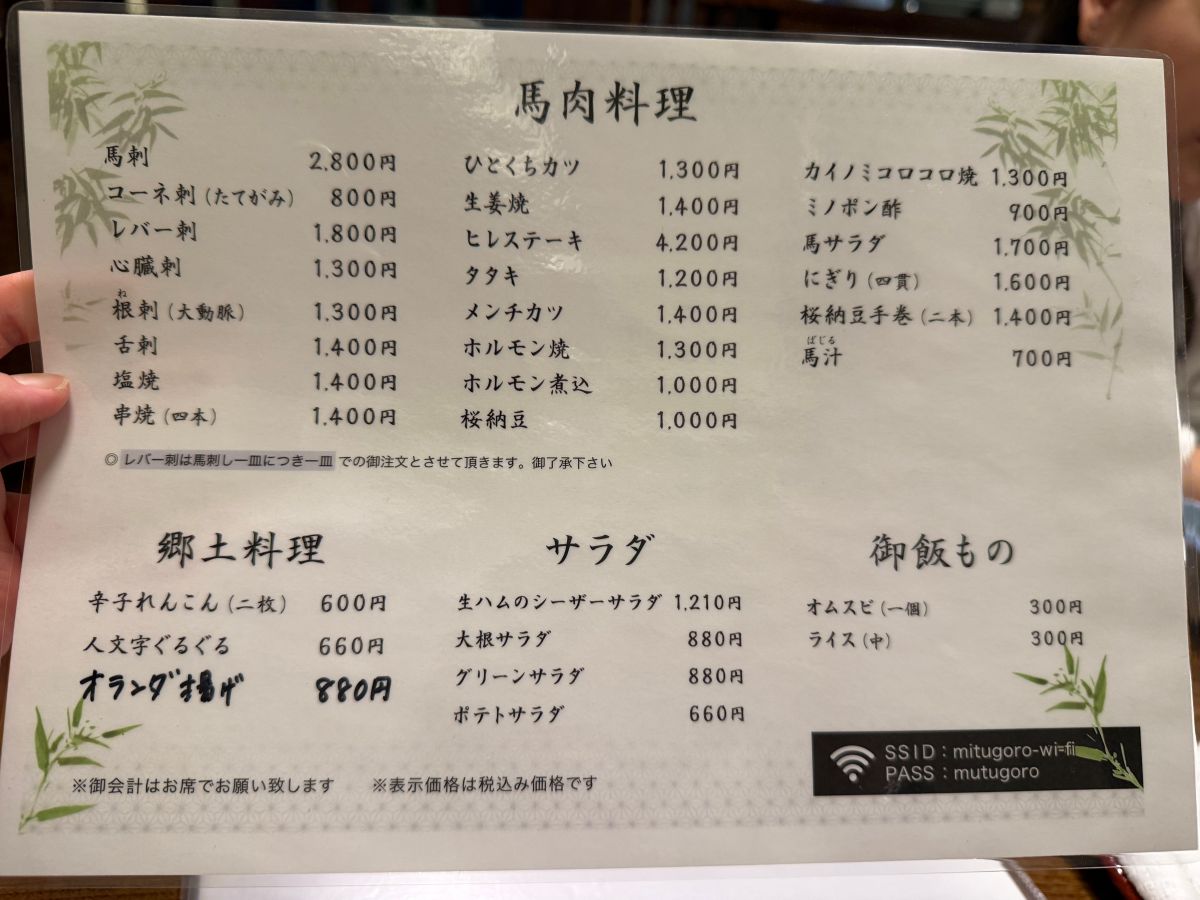 馬肉料理
馬刺 2,800円
コーネ刺(たてがみ) 800円
レバー刺 1,800円
心臓刺 1,300円
ね
根刺(大動脈) 1,300円
舌刺 1,400円
塩焼 1,400円
串焼(四本) 1,400円
ひとくちカツ 1,300円
生姜焼 1,400円
ヒレステーキ 4,200円
タタキ 1,200円
メンチカツ 1,400円
ホルモン焼 1,300円
ホルモン煮込 1,000円
桜納豆 1,000円
カイノミコロコロ焼 1,300円
ミノポン酢 900円
馬サラダ 1,700円
にぎり(四貫) 1,600円
桜納豆手巻(二本) 1,400円
ばじる
馬汁 700円
◎レバー刺は馬刺し一皿につき一皿での御注文とさせて頂きます。御了承下さい
郷土料理
辛子れんこん(二枚) 600円
人文字ぐるぐる 660円
オランダ揚げ 880円
サラダ
生ハムのシーザーサラダ 1,210円
大根サラダ 880円
グリーンサラダ 880円
ポテトサラダ 660円
御飯もの
オムスビ(一個) 300円
ライス(中) 300円
SSID:mitugoro-wi-fi
PASS:mutugoro
※御会計はお席でお願い致します ※表示価格は税込み価格です